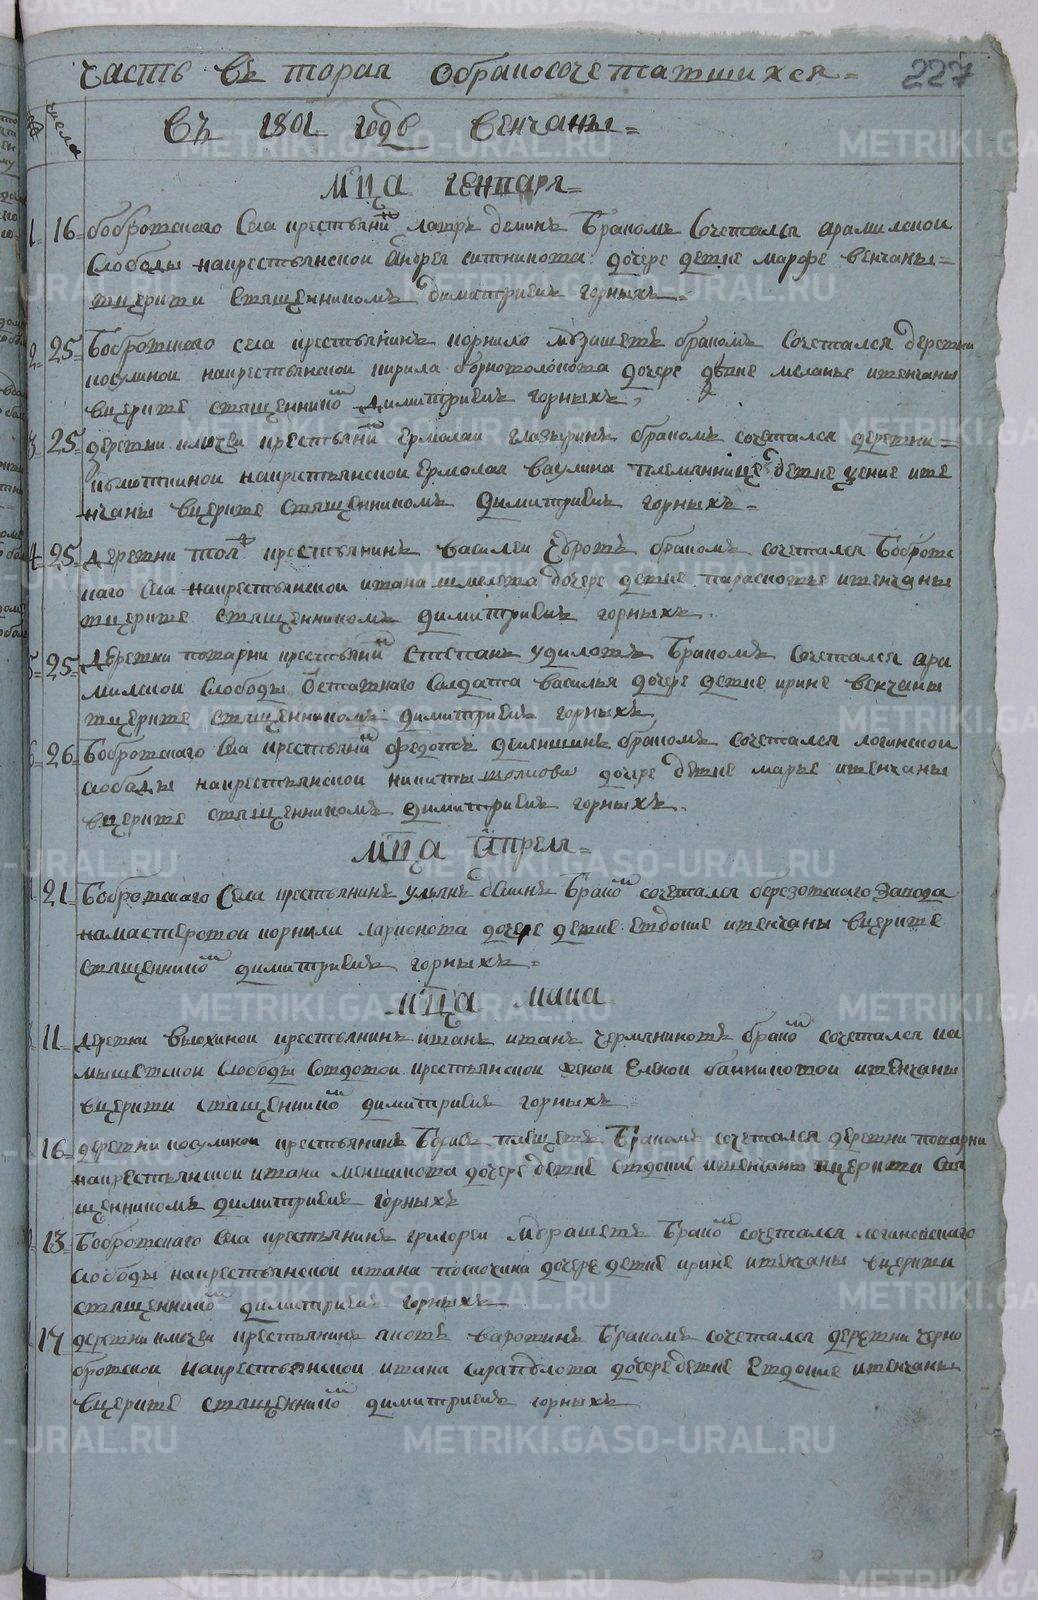 часть въ торая обракосочетавшихся
227
числа
въ 1801 годѣ венчаны
Мца генваря
1 16 бобровскаго села крестьяни лавръ деминъ бракомъ сочетался арамилскои
слободы накрестьянскои андрея ситникова дочере девке марфе венчаны
вцеркви священникомъ димитриевъ горныхъ
2 25 бобровскаго села крестьянинъ корнило бракомъ сочетался деревни
косулинои накрестьянскои кирила дочере девке меланье ивенчаны
вцеркве священнико димитриевъ горныхъ
3 25 деревни ключеи крестьяни ермолаи глазыринъ бракомъ сочетался деревни
накрестьянскои ермолая ваулина племяннице девке ксение иве
нчаны вцеркве священникомъ димитриевъ горныхъ
4 25 деревни крестьянинъ василеи бракомъ сочетался бобровс
каго села накрестьянскои ивана шмелева дочере девке парасковье ивенчаны
вцеркве священникомъ димитриевъ горныхъ
5 25 деревни крестьяни степанъ удиловъ бракомъ сочетался ара
милскои слободы отставнаго солдата василья дочере девке ирине венчаны
вцеркве священникомъ димитриевъ горныхъ
6 26 бобровскаго села крестьяни федотъ деменшинъ бракомъ сочетался логинскои
слободы накрестьянскои никиты дочере девке марье ивенчаны
вцеркве священникомъ димитриевъ горныхъ
Мца апреля
21 бобровскаго села крестьянинъ ульянъ деминъ брако сочетался березовскаго завода
намастеровои корнила ларионова дочере девке евдокие ивенчаны вцеркве
священнико димитриевъ горныхъ
Мца маиа
11 деревни вьюхинои крестьянинъ иванъ иванъ чермяниновъ брако сочетался ка
мышевскои слободы вдовои крестьянскои женои еленои банниковои ивенчаны
вцеркви священнико димитриевъ горныхъ
16 деревни косулинои крестьянинъ борисъ плещевъ бракомъ сочетался деревни
накрестьянскои ивана меншикова дочере девке евдокие ивенчаны вцеркви свя
щенникомъ димитриевъ горныхъ
13 бобровскаго села крестьянинъ григореи мурашевъ брако сочетался логиновскаго
слободы накрестьянскои ивана поскочина дочере девке ирине ивенчаны вцеркви
священнико димитриевъ горныхъ
17 деревни ключеи крестьянинъ яковъ варовинъ бракомъ сочетался деревни черно
бровскои накрестьянскои ивана сарапулова дочере девке евдокие ивенчаны
вцеркве священнико димитриевъ горныхъ
METRIKI.GASO-URAL.RU